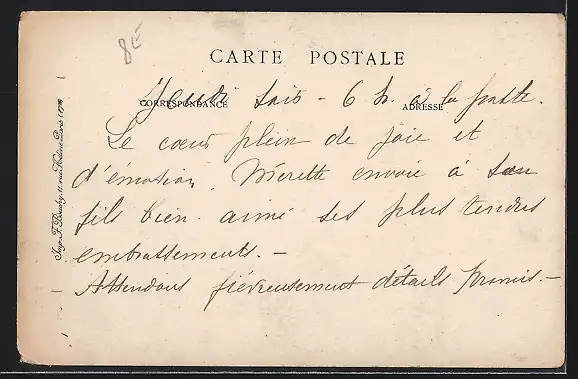 8E
CARTE POSTALE
CORRESPONDANCE
ADRESSE
Jeudi soir - 6 h. à la poste.
Le cœur plein de joie et
d'émotion, envoie à son
fils bien aimé ses plus tendres
embrassements. -
- Attendons fiévreusement détails promis. -